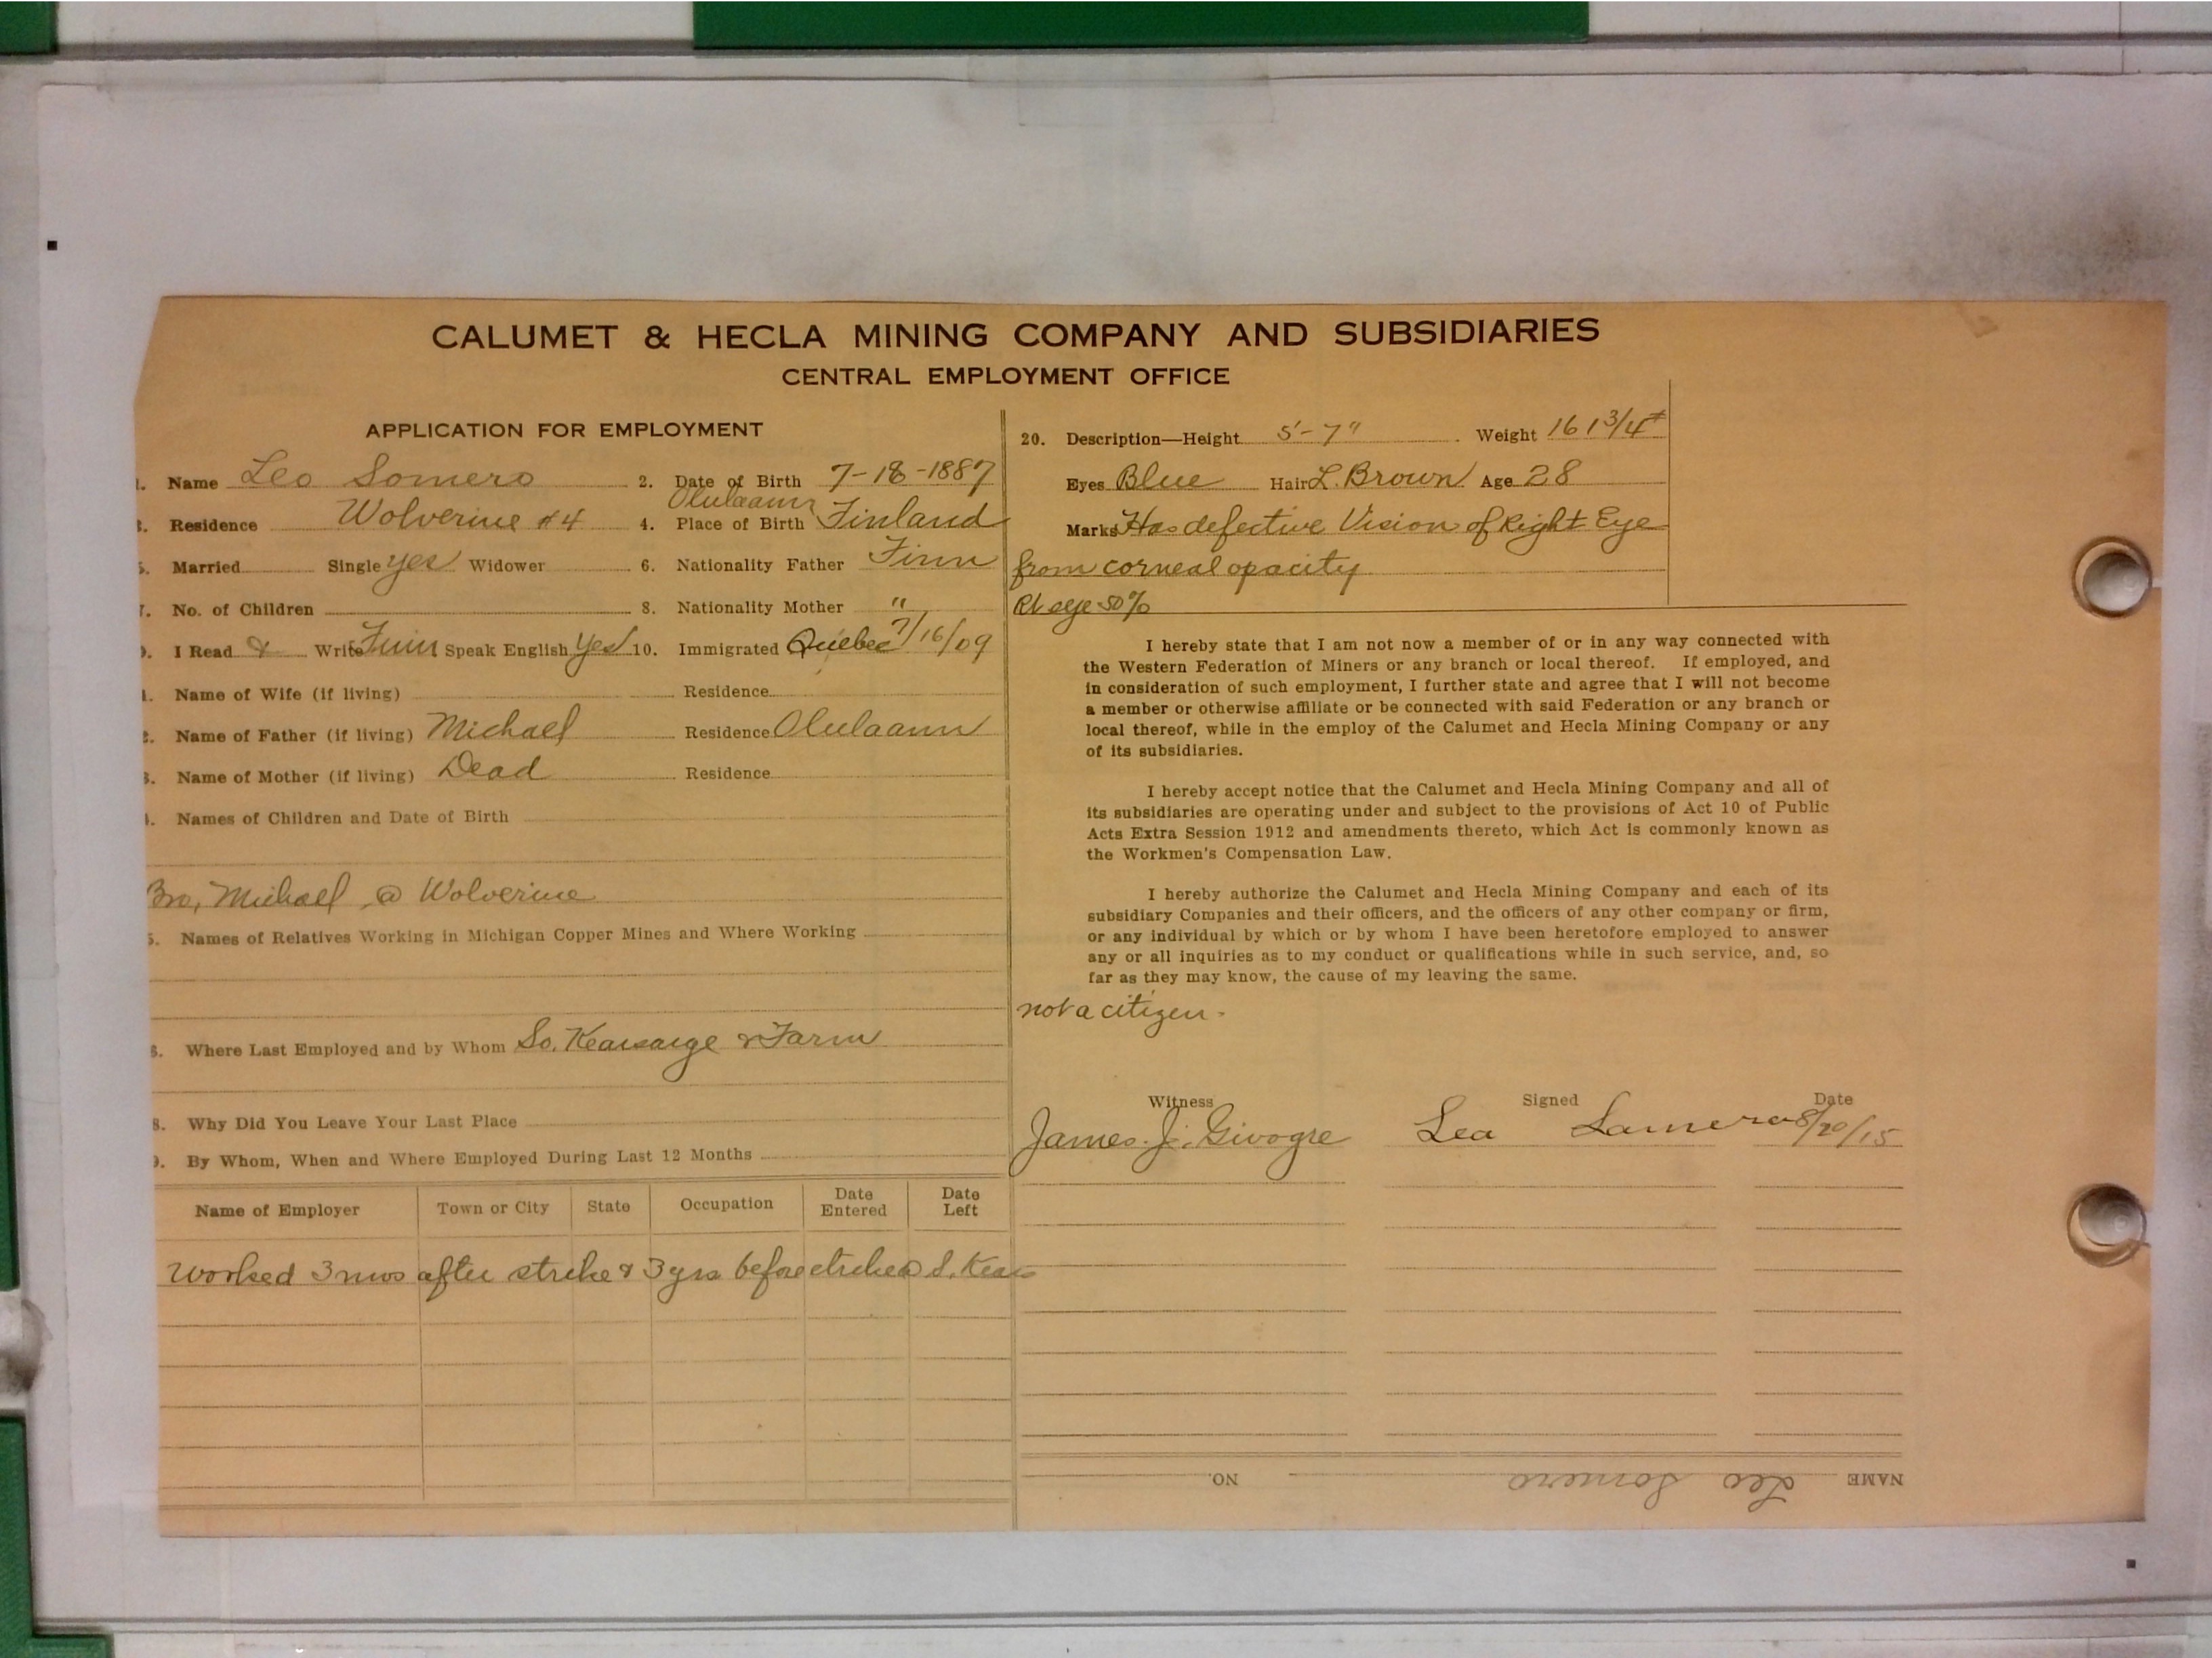 CALUMET & HECLA MINING COMPANY AND SUBSIDIARIES
CENTRAL EMPLOYMENT OFFICE
APPLICATION FOR EMPLOYMENT
1. Name Leo Somero
2. Date of Birth 7-18-1887
3. Residence Wolverine #4
4. Place of Birth Olulaann Finland
5. Married Single yes Widower
6. Nationality Father Finn
7. No. of Children
8. Nationality Mother "
9. I Read & Write Finn Speak English Yes
10. Immigrated Quebec 7/16/09
1. Name of Wife (if living) Residence
2. Name of Father (if living) Michael Residence Olulaann
3. Name of Mother (if living) Dead Residence
4. Names of Children and Date of Birth
Bro, Michael @ Wolverine
5. Names of Relatives Working in Michigan Copper Mines and Where Working
6. Where Last Employed and by Whom So. Kearsarge & Farm
8. Why Did You Leave Your Last Place
9. By Whom, When and Where Employed During Last 12 Months
Name of Employer Town or City State Occupation Date Entered Date Left
Worked 3 mos after strike & 3 yrs before strike @ S. Kears
20. Description—Height 5'-7" Weight 161 3/4 #
Eyes Blue Hair L. Brown Age 28
Marks Has defective Vision of Right Eye
from corneal opacity
Rt eye 50%
I hereby state that I am not now a member of or in any way connected with
the Western Federation of Miners or any branch or local thereof. If employed, and
in consideration of such employment, I further state and agree that I will not become
a member or otherwise affiliate or be connected with said Federation or any branch or
local thereof, while in the employ of the Calumet and Hecla Mining Company or any
of its subsidiaries.
I hereby accept notice that the Calumet and Hecla Mining Company and all of
its subsidiaries are operating under and subject to the provisions of Act 10 of Public
Acts Extra Session 1912 and amendments thereto, which Act is commonly known as
the Workmen's Compensation Law.
I hereby authorize the Calumet and Hecla Mining Company and each of its
subsidiary Companies and their officers, and the officers of any other company or firm,
or any individual by which or by whom I have been heretofore employed to answer
any or all inquiries as to my conduct or qualifications while in such service, and, so
far as they may know, the cause of my leaving the same.
not a citizen.
Witness Signed Date
James. J. Givogre Lea Samera 8/20/15
NAME Leo Somero NO.